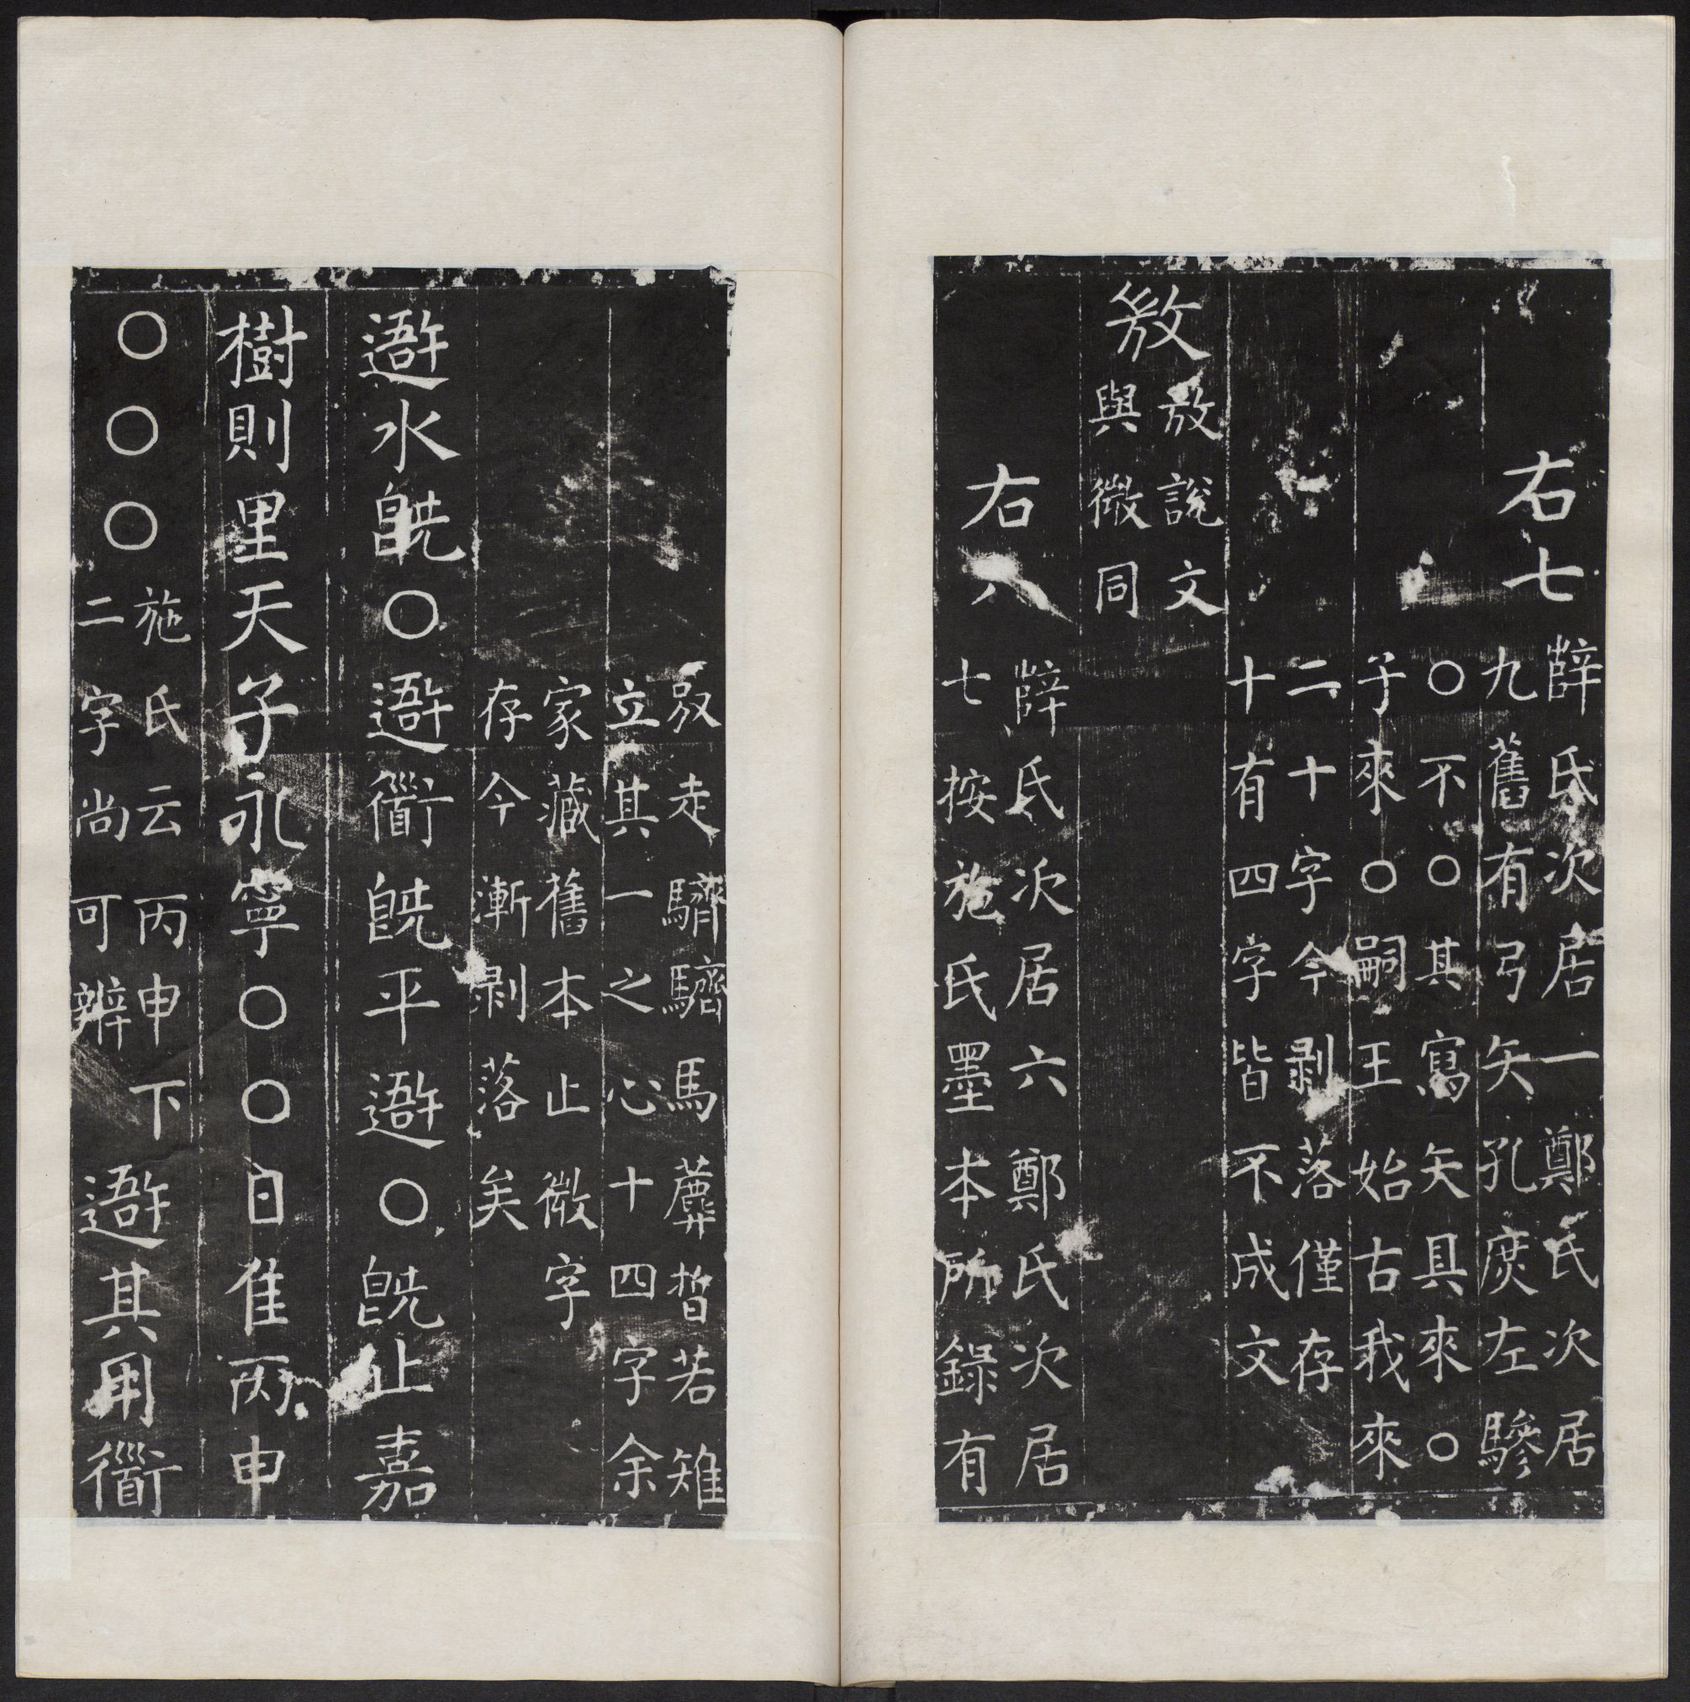 右七
薛氏次居一鄭氏次居
九舊有弓矢孔庶左驂
〇不〇其寫矢具來〇
子來〇嗣王始古我來
二十字今剥落僅存
十有四字皆不成文
𢼸
𢼸說文
與微同
右八
薛氏次居六鄭氏次居
七按施氏墨本所錄有
𢼸走驈驈馬薦䓑若雉
立其一之心十四字余
家藏舊本止微字
存今漸剥落矣
䢩水旣〇䢩衟旣平䢩〇旣止嘉
樹則里天子永寧〇〇日隹丙申
〇〇〇
施氏云丙申下
二字尚可辨
䢩其用衟